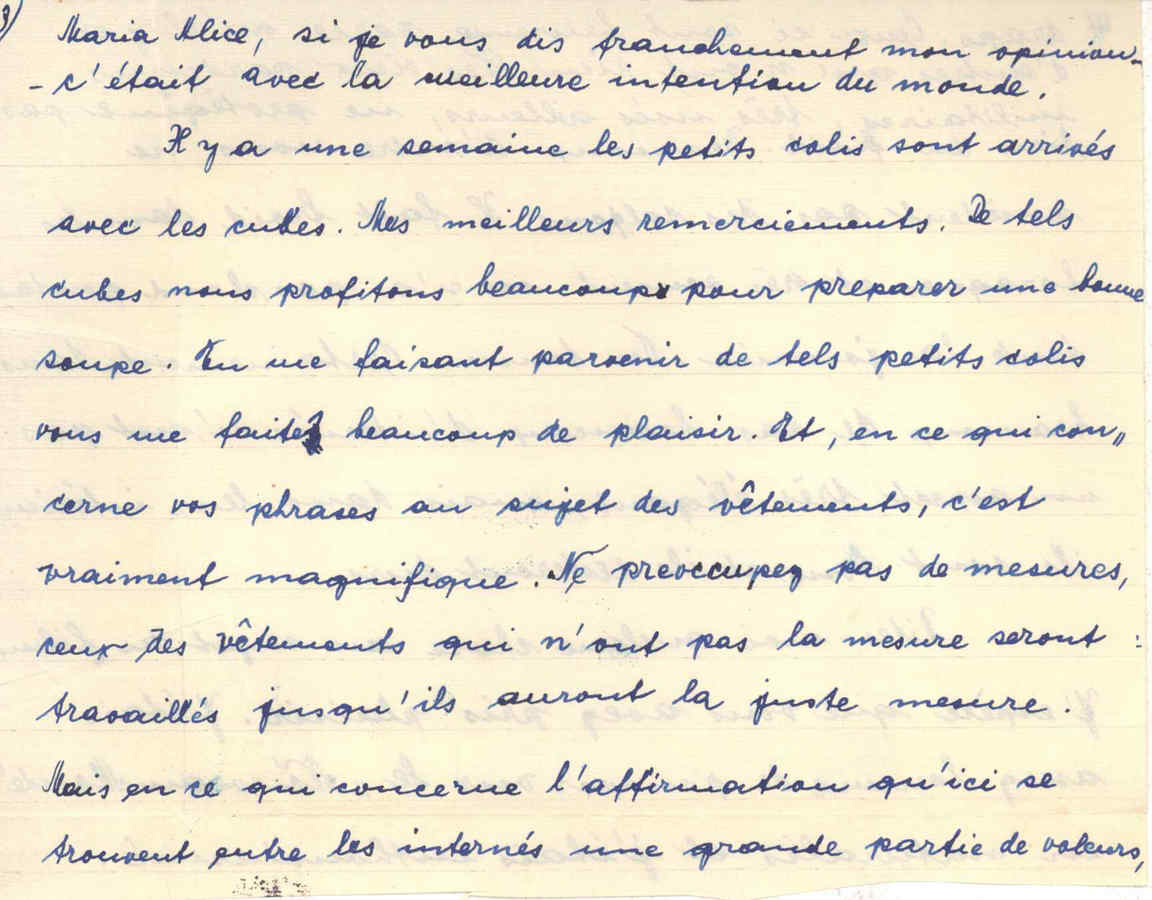 3)
Maria Alice, si je vous dis franchement mon opinion -
- c'était avec la meilleure intention du monde.
Il y a une semaine les petits colis sont arrivés
avec les cubes. Mes meilleurs remerciements. De tels
cubes nous profitons beaucoup pour preparer une bonne
soupe. En me faisant parvenir de tels petits colis
vous me faites beaucoup de plaisir. Et, en ce qui con„
cerne vos phrases au sujet des vêtements, c'est
vraiment magnifique. Ne preoccupez pas de mesures,
ceux des vêtements qui n'ont pas la mesure seront :
travaillés jusqu'ils auront la juste mesure.
Mais en ce qui concerne l'affirmation qu'ici se
trouvent entre les internés une grande partie de voleurs,